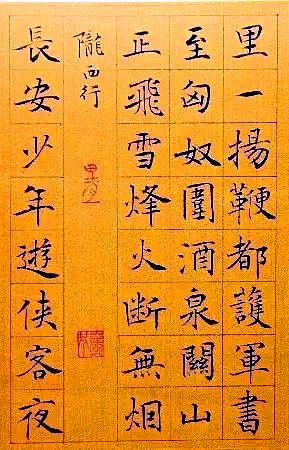 里一揚鞭都護軍書
至匈奴圍酒泉關山
正飛雪烽火斷無烟
隴西行
長安少年遊俠客夜